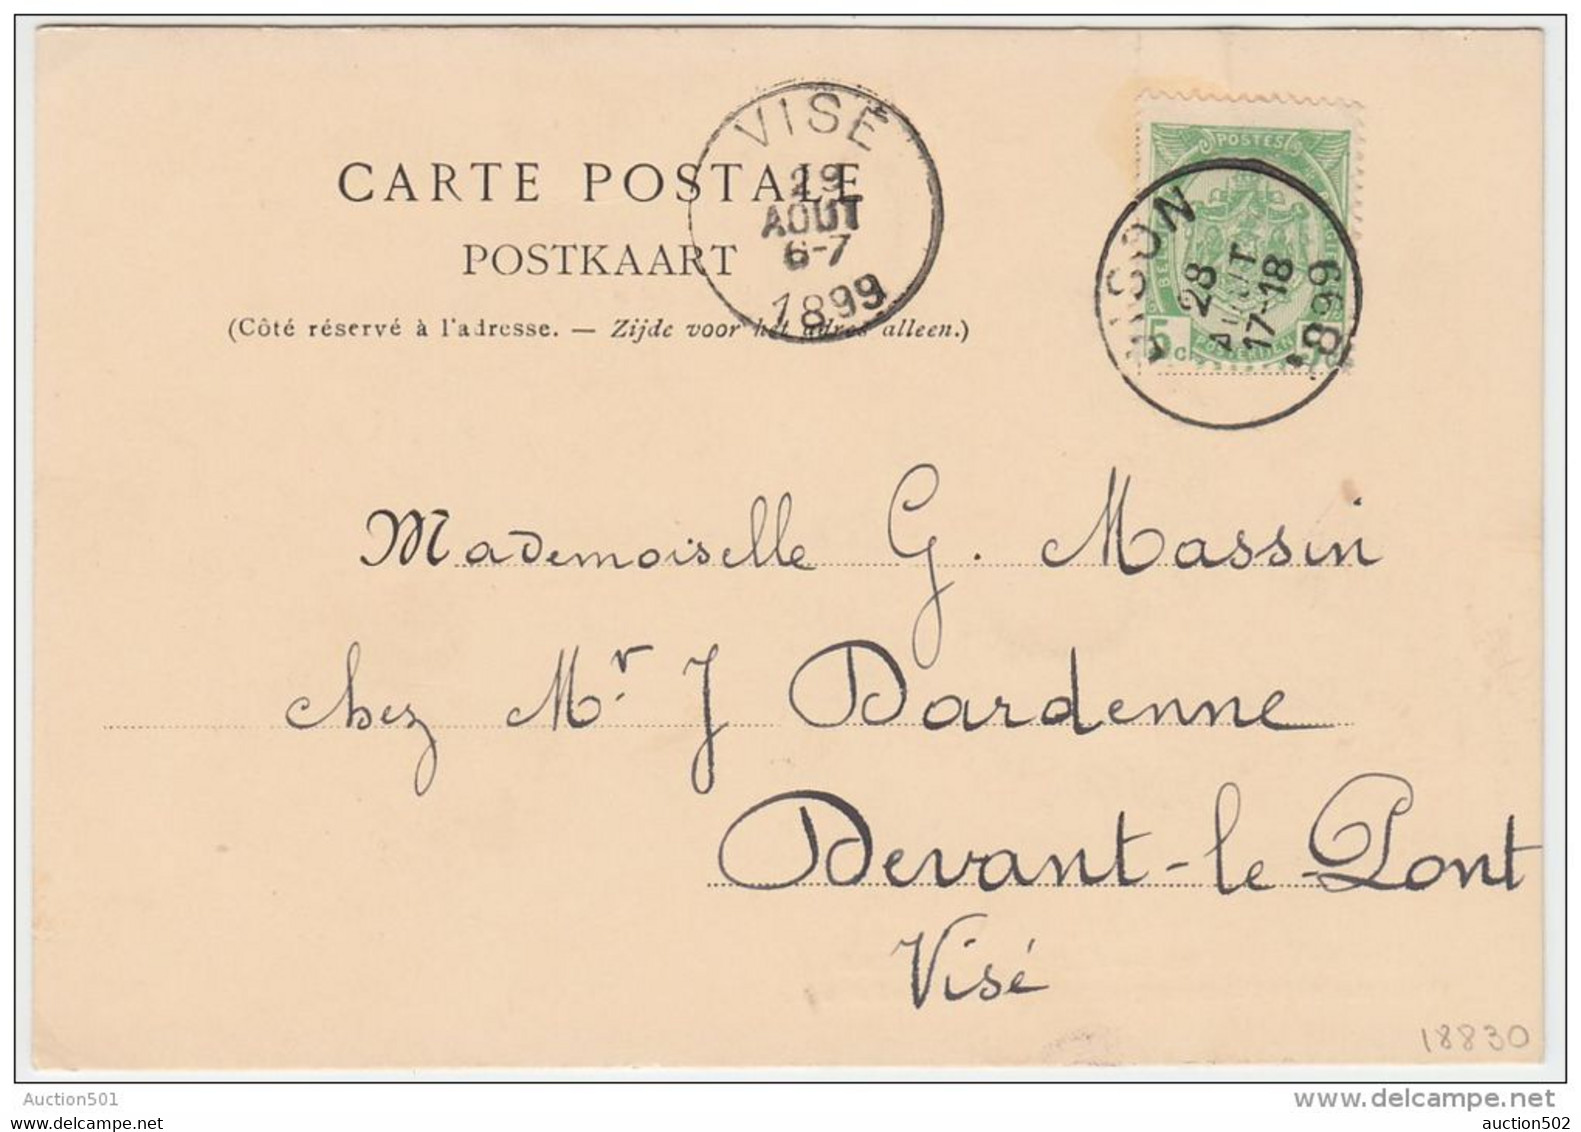 VISÉ
29
AOUT
6-7
1899
CARTE POSTALE
POSTKAART
(Côté réservé à l'adresse. — Zijde voor het adres alleen.)
POSTES
28
AOUT
17-18
1899
5 C
POSTERIJEN
Mademoiselle G. Massin
chez Mr. J Dardenne
Devant-le-Pont
Visé
18830
Auction501
www.delcampe.net
auction502